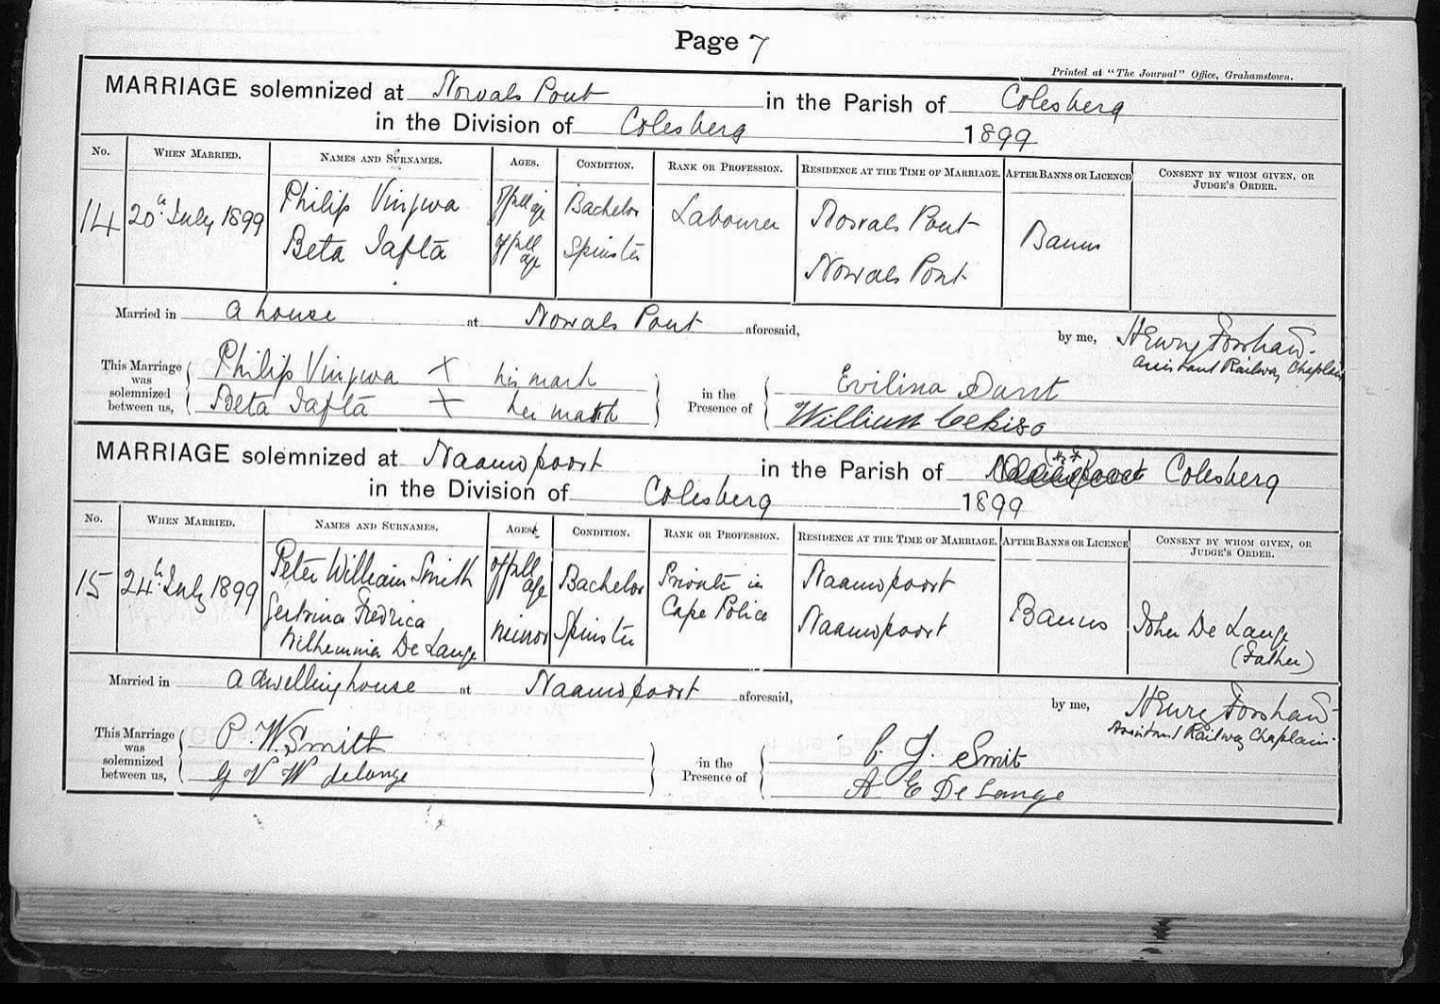 Page 7
Printed at "The Journal" Office, Grahamstown.
MARRIAGE solemnized at Norvals Pont in the Parish of Colesberg
in the Division of Colesberg 1899
No. WHEN MARRIED. NAMES AND SURNAMES. AGES. CONDITION. RANK OR PROFESSION. RESIDENCE AT THE TIME OF MARRIAGE. AFTER BANNS OR LICENCE CONSENT BY WHOM GIVEN, OR JUDGE'S ORDER.
14 20th July 1899 Philip Vinjwa of full age Bachelor Labourer Norvals Pont Banns
Beta Jafta of full age Spinster Norvals Pont
Married in a house at Norvals Pont aforesaid, by me, Henry Forshaw.
Assistant Railway Chaplain
This Marriage was solemnized between us, Philip Vinjwa X his mark in the Presence of Evilina Dant
Beta Jafta X her mark William
MARRIAGE solemnized at Naauwpoort in the Parish of Colesberg
in the Division of Colesberg 1899
No. WHEN MARRIED. NAMES AND SURNAMES. AGES. CONDITION. RANK OR PROFESSION. RESIDENCE AT THE TIME OF MARRIAGE. AFTER BANNS OR LICENCE CONSENT BY WHOM GIVEN, OR JUDGE'S ORDER.
15 24th July 1899 Peter William Smith of full age Bachelor Private in Cape Police Naauwpoort Banns John De Lange (Father)
Gertrina Fredrica Wilhemmia De Lange minor Spinster Naauwpoort
Married in a dwelling house at Naauwpoort aforesaid, by me, Henry Forshaw
Assistant Railway Chaplain.
This Marriage was solemnized between us, P. W. Smith in the Presence of C J. Smit
W delange A E De Lange